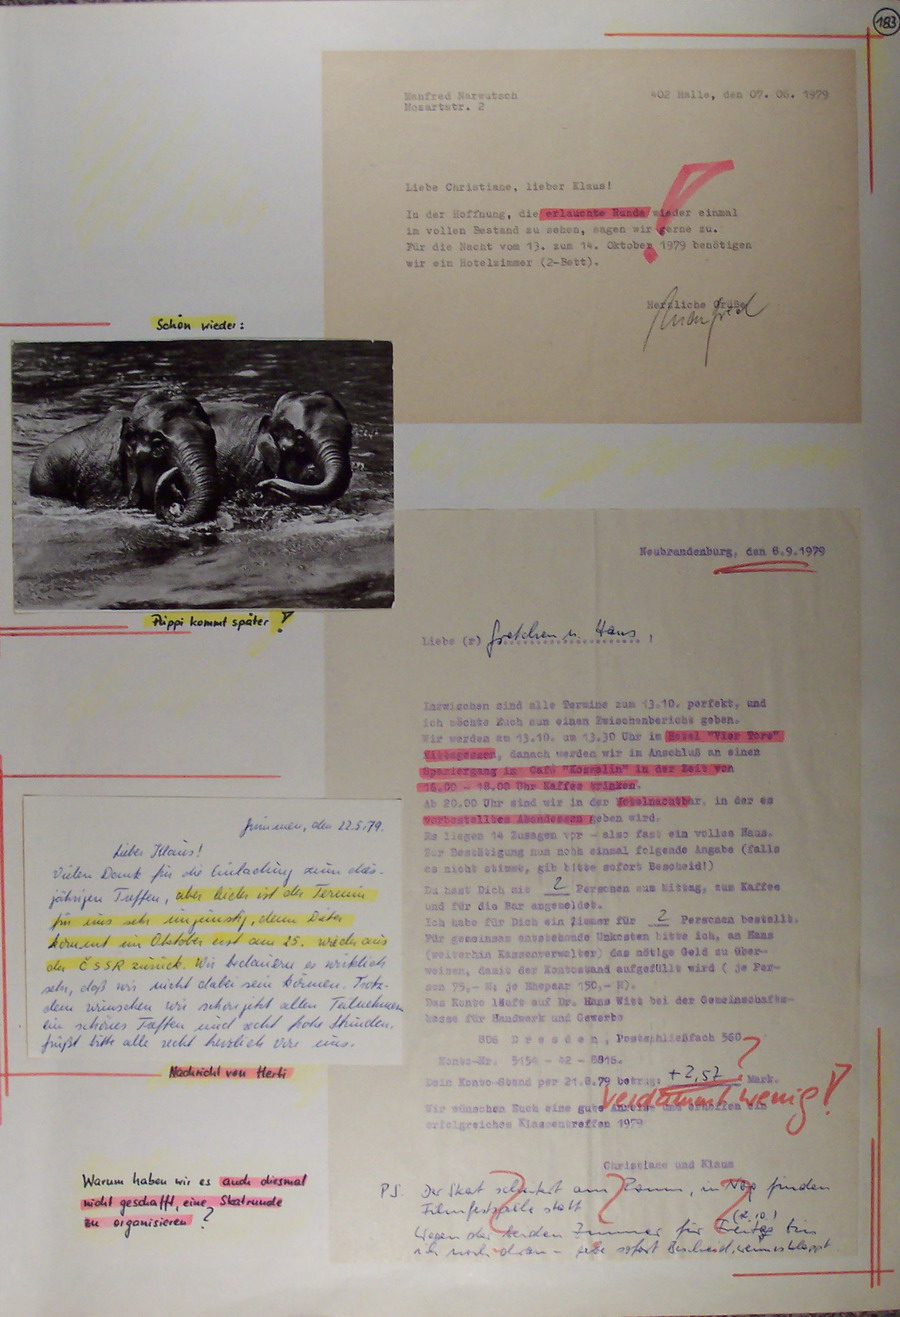 183
Manfred Narwutsch
Mozartstr. 2
402 Halle, den 07. 06. 1979
Liebe Christiane, lieber Klaus!
In der Hoffnung, die erlauchte Runde wieder einmal
in vollen Bestand zu sehen, sagen wir gerne zu.
Für die Nacht vom 13. zum 14. Oktober 1979 benötigen
wir ein Hotelzimmer (2-Bett).
Herzliche Grüße
Manfred
Schön wieder:
Püppi kommt später!
Neubrandenburg, den 8.9.1979
Liebe (r) Gretchen u. Hans,
Inzwischen sind alle Termine zum 13.10. perfekt, und
ich möchte Euch nun einen Zwischenbericht geben.
Wir werden am 13.10. um 13.30 Uhr im Hotel "Vier Tore"
Mittagessen, danach werden wir im Anschluß an einen
Spaziergang im Café "Kosselin" in der Zeit von
16.00 - 18.00 Uhr Kaffee trinken.
Ab 20.00 Uhr sind wir in der Hotelnachtbar, in der es
vorbestelltes Abendessen geben wird.
Es liegen 14 Zusagen vor - also fast ein volles Haus.
Zur Bestätigung nun noch einmal folgende Angabe (falls
es nicht stimmt, gib bitte sofort Bescheid!)
Du hast Dich mit 2 Personen zum Mittag, zum Kaffee
und für die Bar angemeldet.
Ich habe für Dich ein Zimmer für 2 Personen bestellt.
Für gemeinsam entstehende Unkosten bitte ich, an Hans
(weiterhin Kassenverwalter) das nötige Geld zu über-
weisen, damit der Kontostand aufgefüllt wird ( je Per-
son 75,- M; je Ehepaar 150,- M).
Das Konto läuft auf Dr. Hans Witt bei der Genossenschafts-
kasse für Handwerk und Gewerbe
806 D r e s d e n , Postschließfach 560
Konto-Nr. 5154 - 42 - 8816.
Dein Konto-Stand per 21.8.79 betrug: +2,57 Mark.
verdammt wenig!
Wir wünschen Euch eine gute Anreise und erhoffen ein
erfolgreiches Klassentreffen 1979
Christiane und Klaus
PS. Der Skat scheitert am Raum, in Nbg finden
Filmfestspiele statt
Wegen der beiden Zimmer für Freitag bin
(12.10.)
ich noch dran - gebe sofort Bescheid, wenn es klappt.
Grimmen, den 22.5.79.
Lieber Klaus!
Vielen Dank für die Einladung zum dies-
jährigen Treffen, aber leider ist der Termin
für uns sehr ungünstig, denn Dieter
kommt im Oktober erst am 25. wieder aus
der ČSSR zurück. Wir bedauern es wirklich
sehr, daß wir nicht dabei sein können. Trotz-
dem wünschen wir schon jetzt allen Teilnehmern
ein schönes Treffen und recht frohe Stunden.
Grüßt bitte alle recht herzlich von uns.
Nachricht von Herti
Warum haben wir es auch diesmal
nicht geschafft, eine Skatrunde
zu organisieren?